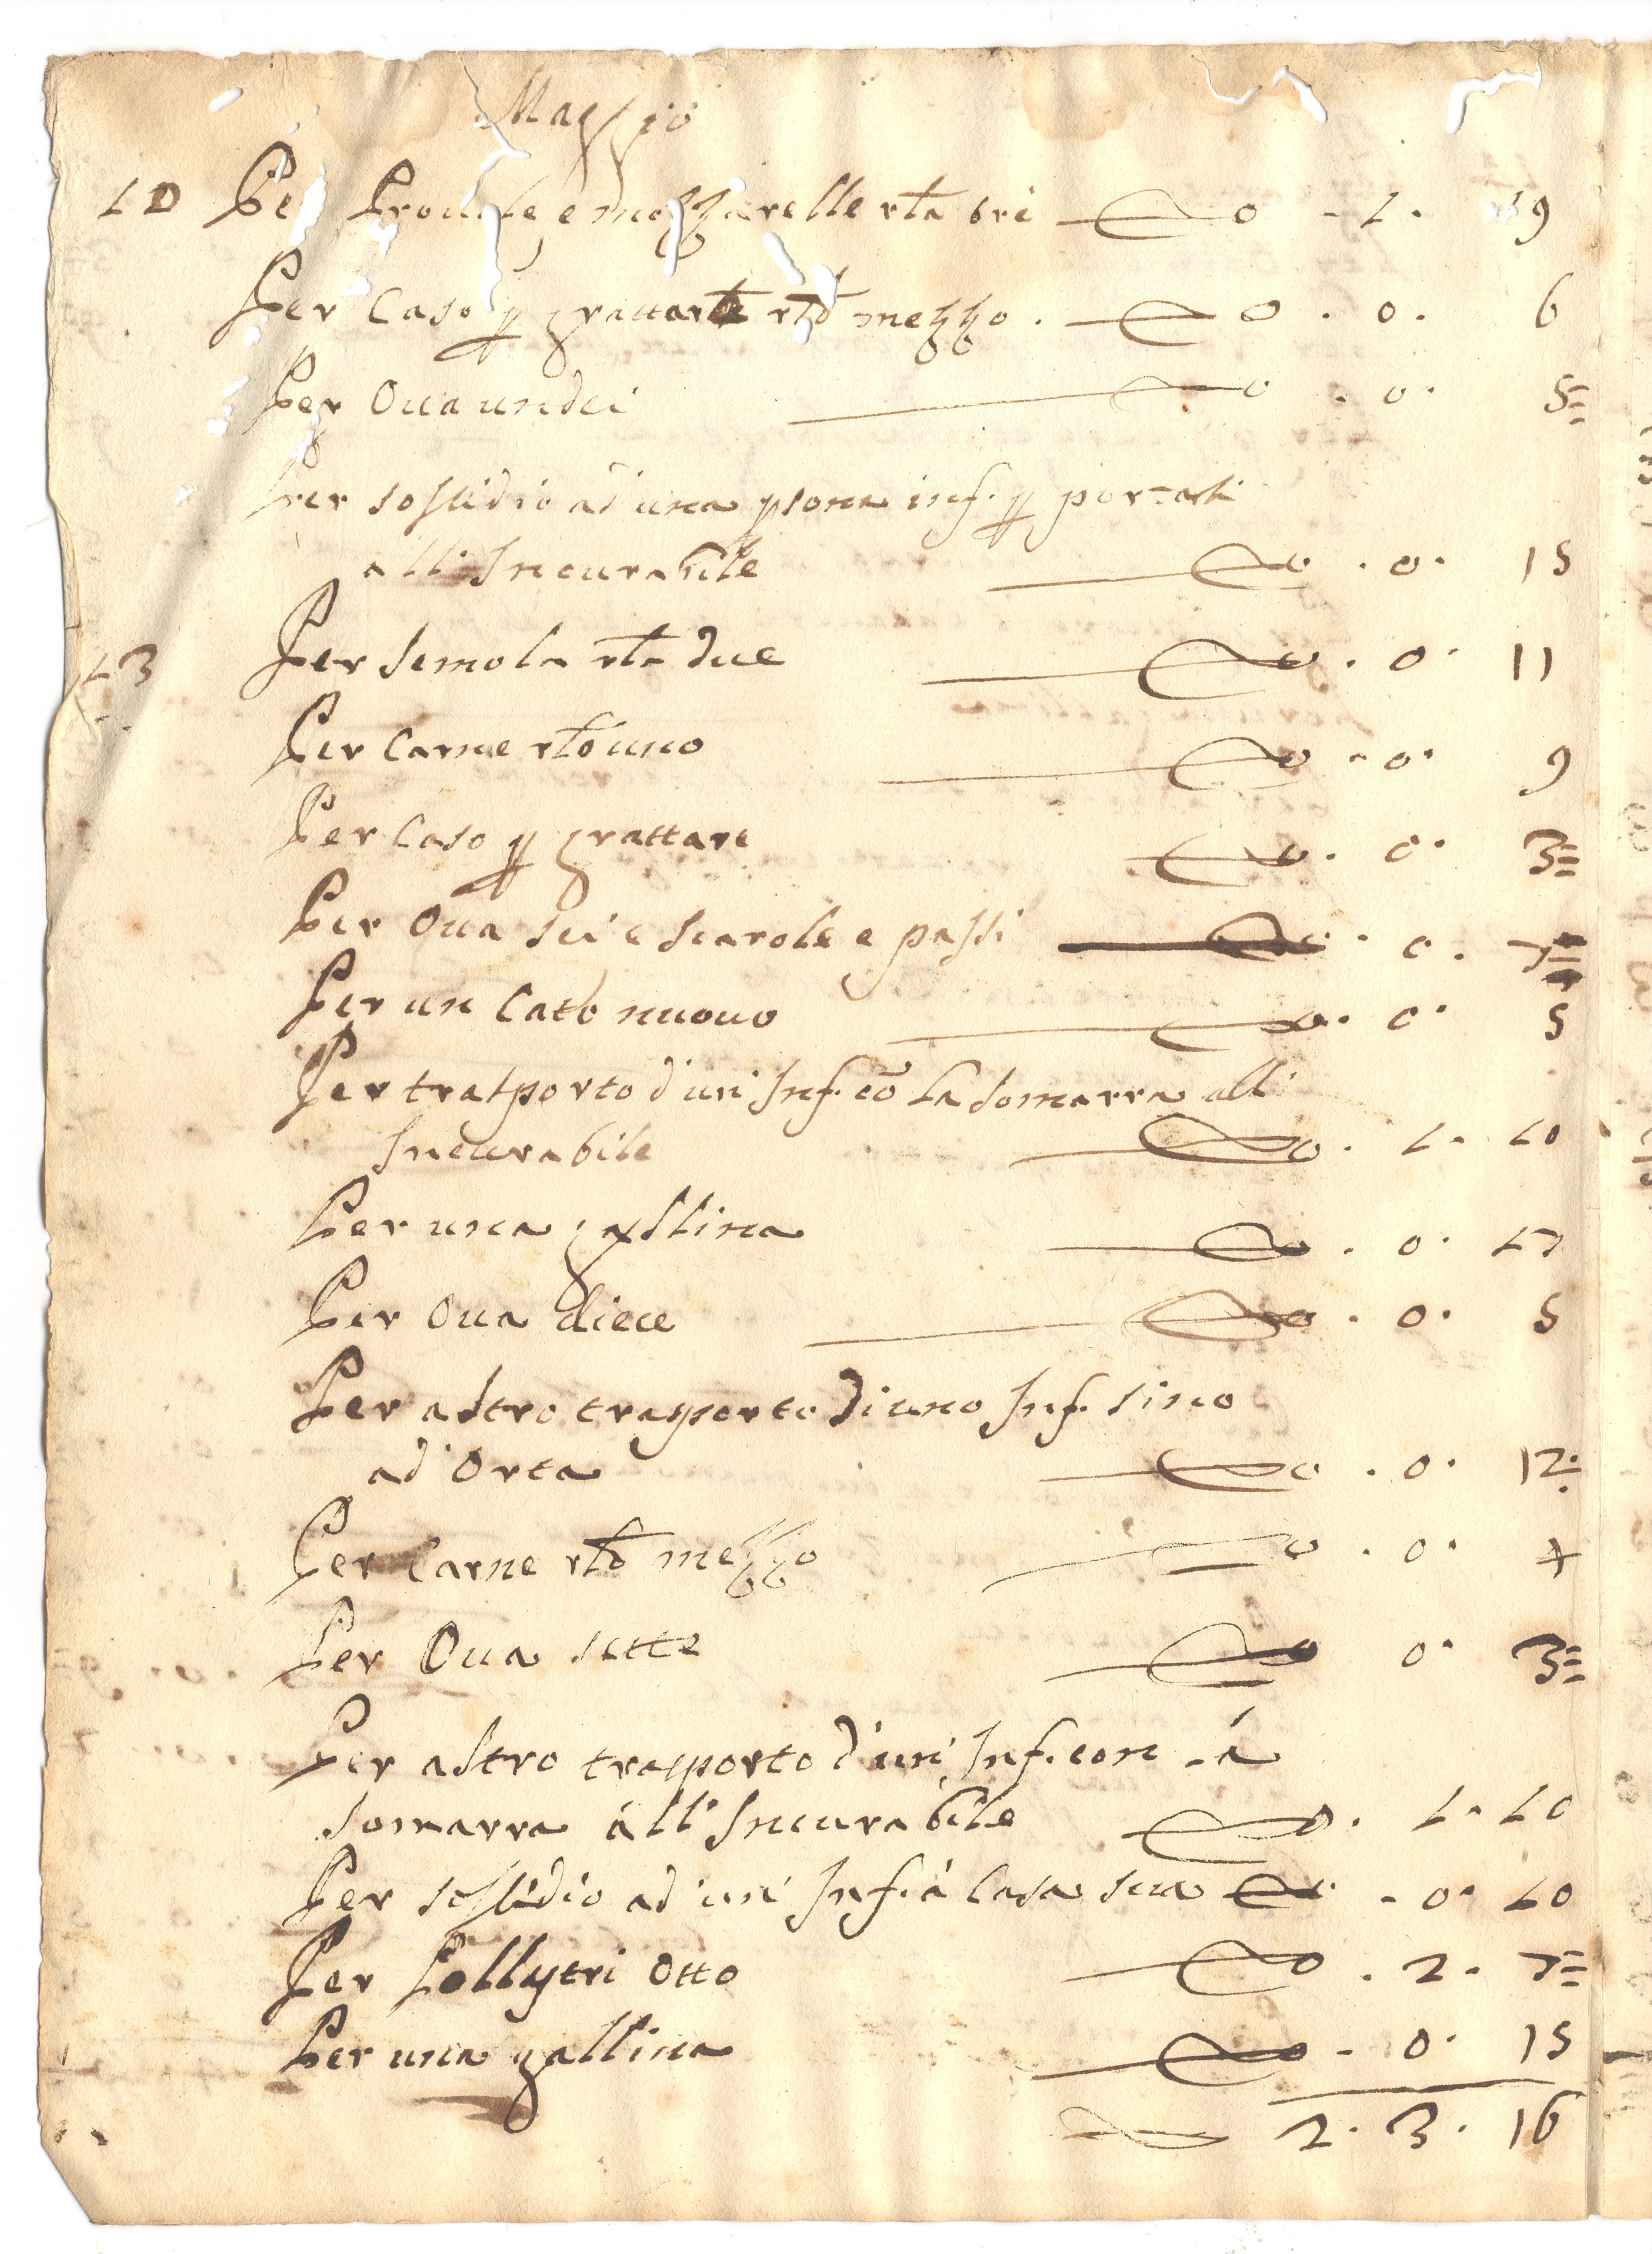 Maggio
10 Per Prouole, e mozzarelle rt͞a trè 0 - 1 . 19
Per Caso p grattare rt͞o mezzo . 0 . 0 . 6
Per Oua undeci 0 . 0 . 5=
Per sossidio ad una psona inf. p portarsi
all' Incurabile 0 . 0 . 15
13 Per Semola rt͞a due 0 . 0 . 11
Per Carne rt͞o uno 0 . 0 . 9
Per Caso p grattare 0 . 0 . 3=
Per Oua sei e scarole e passi 0 . 0 . 7=
Per un Cato nuouo 0 . 0 . 5
Per trasporto d'un' Inf. cō la somarra all'
Incurabile 0 . 1 . 10
Per una gallina 0 . 0 . 17
Per Oua diece 0 . 0 . 5
Per altro trasporto di uno Inf. sino
ad Orta 0 . 0 . 12
Per Carne rt͞o mezzo 0 . 0 .
Per Oua sette 0 0 . 3=
Per altro trasporto d'un' Inf. con la
somarra all' Incurabile 0 . 1 . 10
Per sossidio ad un' Inf. à Casa sua 0 - 0 . 10
Per Pollastri Otto 0 . 2 . 7=
Per una gallina 0 - 0 . 15
2 . 3 . 16